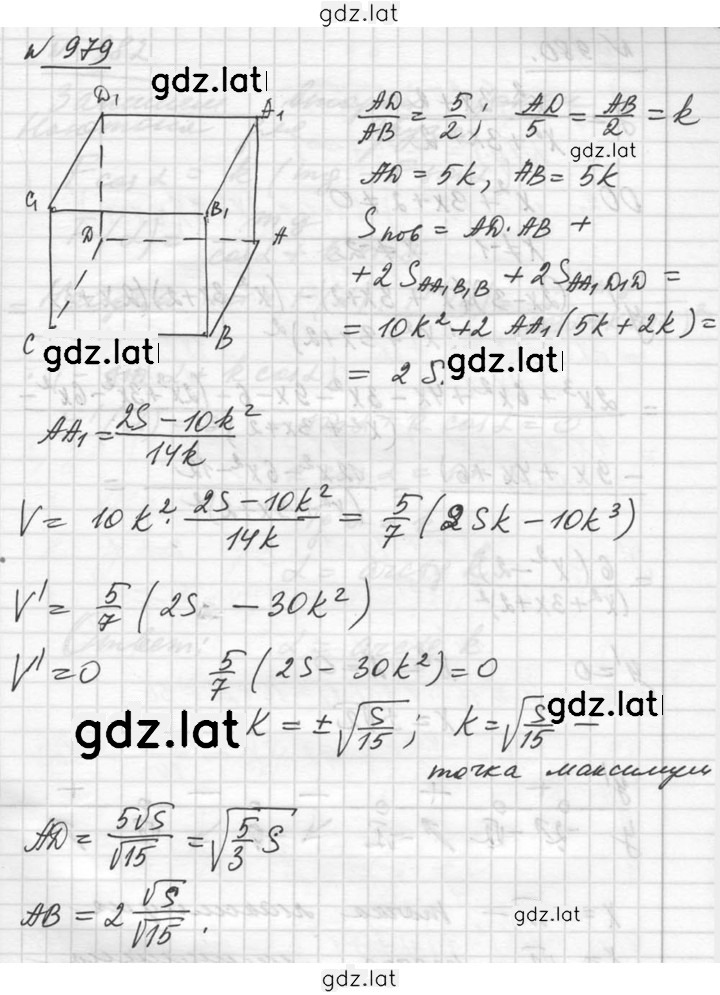 gdz.lat
№ 979
gdz.lat
D₁ A₁
C₁ B₁
D A
C B
gdz.lat
AD/AB = 5/2; AD/5 = AB/2 = k
gdz.lat
AD = 5k, AB = 5k
Sпов = AD·AB +
+ 2S_AA₁B₁B + 2S_AA₁D₁D =
= 10k² + 2 AA₁(5k + 2k) =
gdz.lat
= 2S.
AA₁ = (2S − 10k²)/14k
V = 10k² · (2S − 10k²)/14k = 5/7 (2Sk − 10k³)
V' = 5/7 (2S − 30k²)
V' = 0 5/7 (2S − 30k²) = 0
gdz.lat
K = ± √(S/15); K = √(S/15) —
gdz.lat
точка максимум
AD = 5√S/√15 = √(5/3 S)
AB = 2 √S/√15.
gdz.lat
gdz.lat